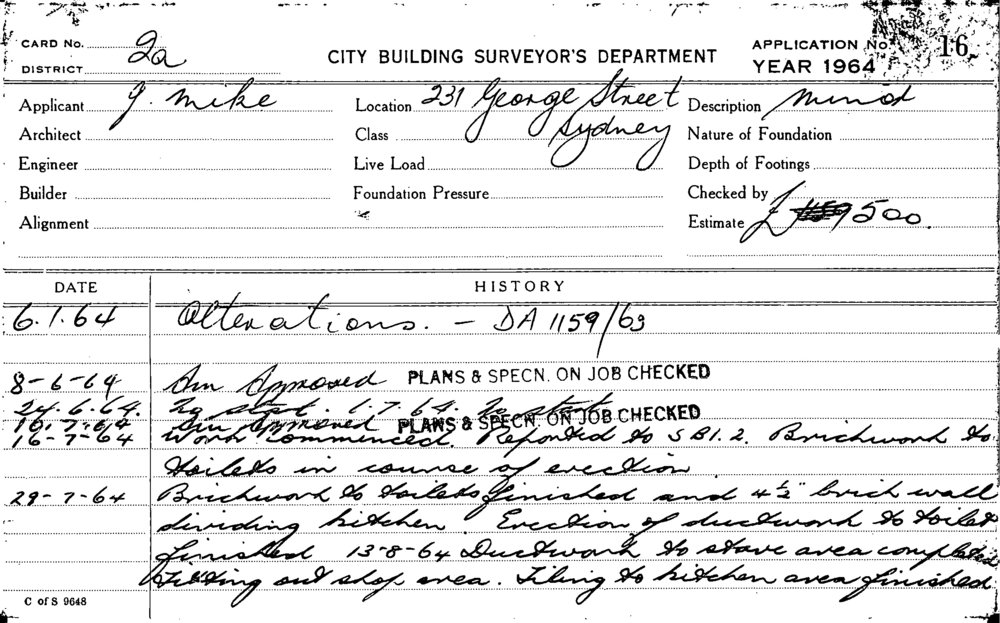 CARD No. 2a
DISTRICT
CITY BUILDING SURVEYOR'S DEPARTMENT
APPLICATION No. 16
YEAR 1964
Applicant J. Mike
Location 231 George Street
Sydney
Description Minor
Architect
Class
Nature of Foundation
Engineer
Live Load
Depth of Footings
Builder
Foundation Pressure
Checked by
Alignment
Estimate £ 500.
DATE HISTORY
6.1.64 Alterations. - DA 1159/63
8-6-64 Am Approved PLANS & SPECN. ON JOB CHECKED
24.6.64. No start. 1.7.64. No start
16.7.64 Am Approved PLANS & SPECN. ON JOB CHECKED
16-7-64 Work commenced. Reported to SBI.2. Brickwork to
toilets in course of erection
29-7-64 Brickwork to toilets finished and 4½" brick wall
dividing kitchen Erection of ductwork to toilet
finished 13-8-64 Ductwork to stove area completed
Fitting out shop area. Tiling to kitchen area finished.
C of S 9648